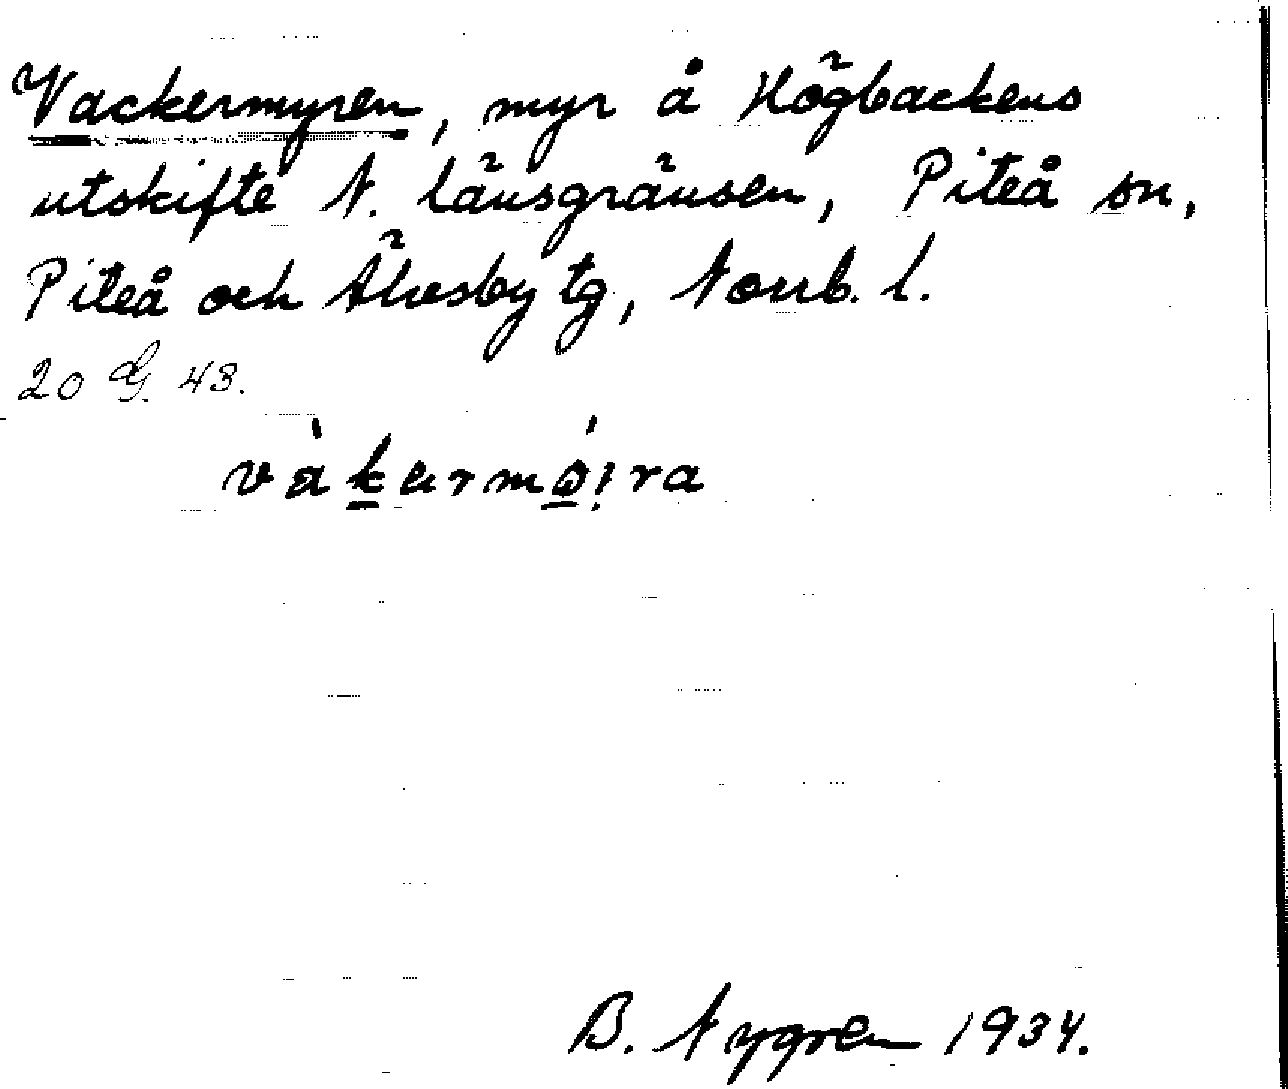 Vackermyren, myr å Högbackens
utskifte N. länsgränsen, Piteå sn,
Piteå och Älvsby tg, Norrb. l.
20 G. 43.
B. Nygren 1934.